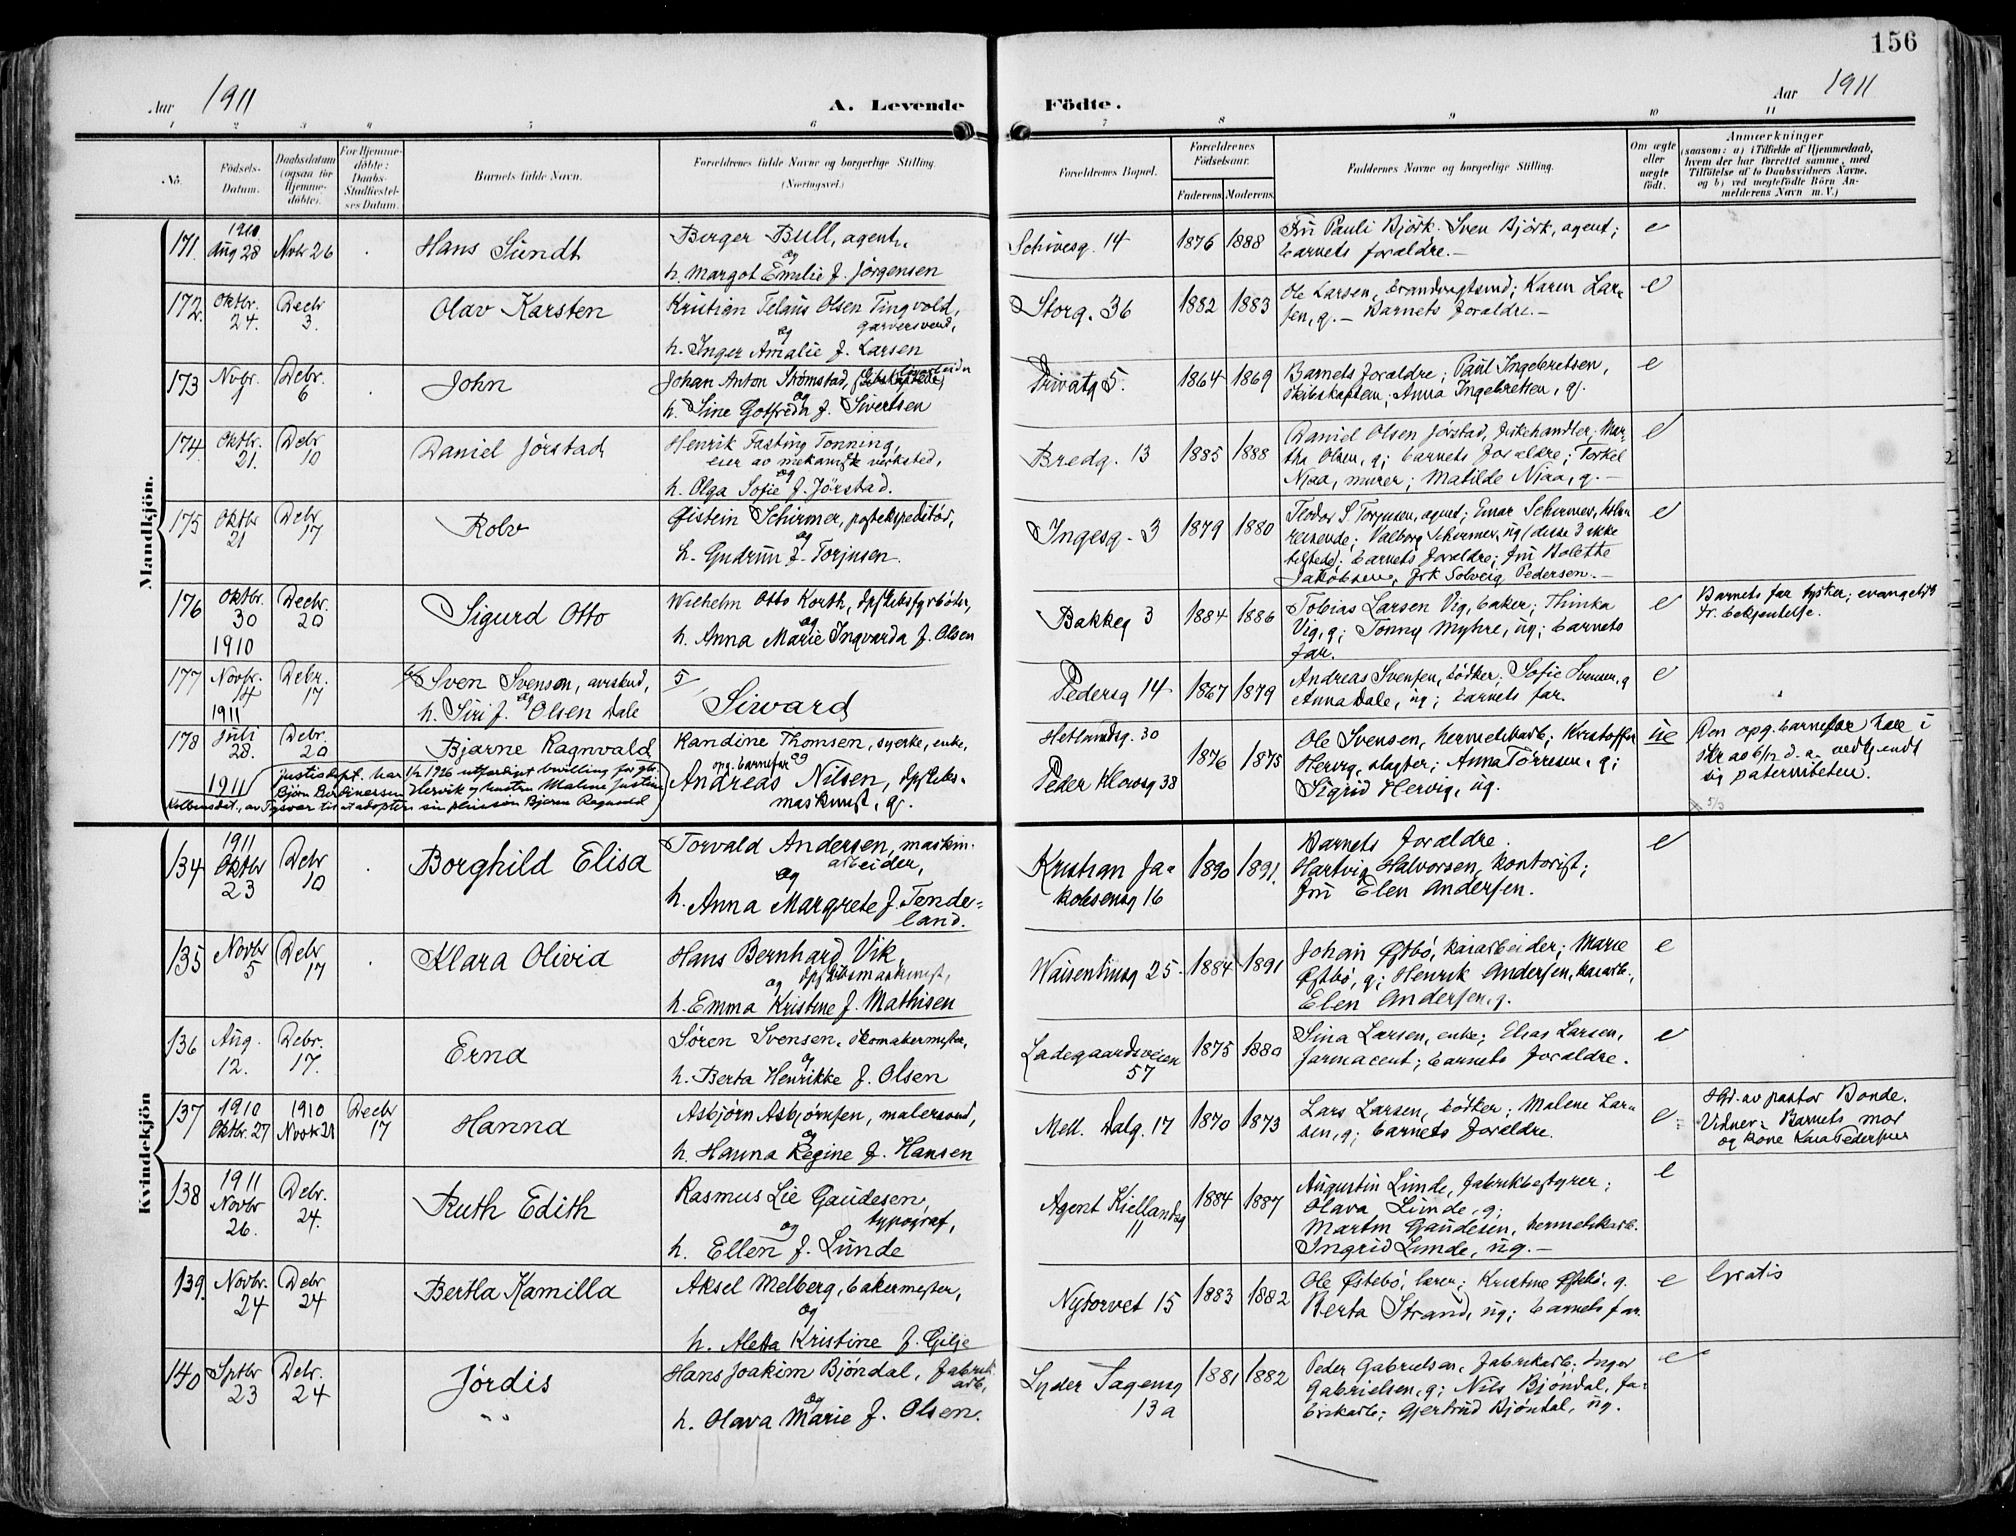 156
Aar 1911
A. Levende Födte.
Aar 1911
1 2 3 4 5 6 7 8 9 10 11
No.
Födsels-Datum.
Daabsdatum (ogsaa for Hjemme-döbte).
For Hjemme-döbte: Daabs-Stadfæstel-ses Datum.
Barnets fulde Navn.
Forældrenes fulde Navne og borgerlige Stilling. (Næringsvei.)
Forældrenes Bopæl.
Forældrenes Födselsaar.
Faderens. Moderens.
Faddernes Navne og borgerlige Stilling.
Om ægte eller uægte födt.
Anmærkninger
(saasom: a) i Tilfælde af Hjemmedaab, hvem der har forrettet samme, med Tilföielse af to Daabsvidners Navne, og b) ved uægtefödte Börn An-melderens Navn m. V.)
Mandkjön.
171 1910 Aug 28 Novbr 26 Hans Sundt
Berger Bull, agent,
og
h. Margot Emelie f. Jørgensen
Schivesg. 14 1876 1888
Fru Pauli Bjørk. Sven Bjørk, agent;
barnets forældre.—
e
172. Oktbr. 24. Decbr 3. Olav Karsten
Kristian Telaus Olsen Tingvold,
garversvend,
og
h. Inger Amalie f. Larsen
Storg. 36 1882 1883
Ole Larsen, brandvagtsmd; Karen Lar-
sen, g.— Barnets forældre.—
e
173 Novbr. 1 Debr. 6 John
Johan Anton Strømstad,
og
h. Sine Gotfreda f. Sivertsen
Privatg 5. 1864 1869
Barnets forældre; Paul Ingebretsen,
skibskaptein; Anna Ingebretsen, g.
e
174 Oktbr. 21. Debr 10 Daniel Jørstad
Henrik Fasting Tonning,
eier av mekanisk verksted,
og
h. Olga Sofie f. Jørstad.
Bredg. 13 1885 1888
Daniel Olsen Jørstad, fiskehandler, Mar-
tha Olsen, g; barnets forældre; Torkel
Njaa, murer; Matilde Njaa, g.—
e
175 Oktbr 21 Debr 17 Rolv
Øistein Schirmer, postekspeditør,
og
h. Gudrun f. Torjusen.
Ingesg. 3 1879 1880
Teodor S. Torjusen, agent; Einar Schirmer,
reisende; Valborg Schirmer, ug (disse 3 ikke
tilstede); barnets forældre; fru Bolette
Jakobsen, frk Solveig Pedersen.—
e
176 Oktbr. 30 1910 Decbr. 20 Sigurd Otto
Wilhelm Otto Korth, dpskibsfyrbøter,
og
h. Anna Marie Ingvarda f. Olsen
Bakkeg 3 1884 1886
Tobias Larsen Vig, baker; Thinka
Vig, g; Tonny Myhre, ug; barnets
far.
e
Barnets far tysker; evangelisk
tr. bekjentelse.
177 Novbr. 14 1911 Debr. 17
6/ Sven Svenson, avisbud,
og
h. Siri f. Olsen Dale
5/ Siward
Pedersg 14 1867 1879
Andreas Svensen, bødker; Sofie Svensen, g
Anna Dale, ug; barnets far.
e
178 Juli 28. 1911 Debr. 20 Bjarne Ragnvald
Kandine Thomsen, syerske, enke,
opg. barnefar og
Andreas Nilsen, dpskibs-
maskinist, g.
Hetlandsg. 30
Peder Klowsg 38 1876 1875
Ole Svensen, hermetikarb; Kristoffer
Hervig, slagter; Anna Tørresen, g;
Sigrid Hervig, ug.
ue
Den opg. barnefar har i
skr av 6/12 d. a. vedkjendt
sig paterniteten.
Justisdept. har 1/2 1926 utferdiget bevilling for gb.
Bjørn Berdinesen Hervik og hustru Malene Justine
av Tysvær til at adoptere sin pleiesøn Bjarne Ragnvald
Kvindekjön
134 1911 Oktbr 23 Debr 10 Borghild Elisa
Torvald Andersen, maskin-
arbeider,
og
h. Anna Margrete f. Tende-
land.
Kristian Ja-
kobsensg 16 1890 1891.
Barnets forældre.
Hartvig Halvorsen, kontorist;
fru Elen Andersen.
e
135 Novbr 5 Debr 17 Klara Olivia
Hans Bernhard Vik,
dpskibsmaskinist,
og
h. Emma Kristine f. Mathisen
Waisenhusg 25. 1884 1891
Johan Østbø, kaiarbeider; Marie
Østbø, g; Henrik Andersen, kaiarb.,
Elen Andersen, g.
e
136 Aug. 12. Debr. 17. Erna
Søren Svensen, skomakermester,
og
h. Berta Henrikke f. Olsen
Ladegaardsveien
57 1875 1880
Sina Larsen, enke; Elias Larsen,
farmaceut; barnets forældre.
e
137 1910 Oktbr. 27 1910 Decbr 17 Hanna
Asbjørn Asbjørnsen, malersvend,
og
h. Hanna Regine f. Hansen
Mell. Dalg. 17 1870 1873
Lars Larsen, bødker; Malene Lar-
sen, g; barnets forældre.
e
Hjd. av pastor Bonde.
Vidner: Barnets mor
og kone Kaia Pedersen
138 1911 Novbr 26. Debr. 24. Ruth Edith
Rasmus Lie Gaudesen,
typograf,
og
h. Ellen f. Lunde
Agent Kiellandsg
11 1884 1887
Augustin Lunde, fabrikbestyrer;
Olava Lunde, g;
Martin Gaudesen, hermetikarb.
Ingrid Lunde, ug.—
e
139. Novbr. 24 Debr 24 Bertha Kamilla
Aksel Melberg, bakermester,
og
h. Aletta Kristine f. Gilje
Nytorvet 15 1883 1882
Ole Østebø, lærer; Kristine Østebø, g.
Berta Strand, ug; barnets far
e
Gratis
140 Sptbr 23 Debr. 24 Jórdis
Hans Joakim Bjøndal, fabrik
arb,
og
h. Olava Marie f. Olsen.
Lyder Sagensg
13a 1881 1882
Peder Gabrielsen, fabrikarb; Inger
Gabrielsen, g; Nils Bjøndal, fa-
brikarb; Gjertrud Bjøndal, ug.
e